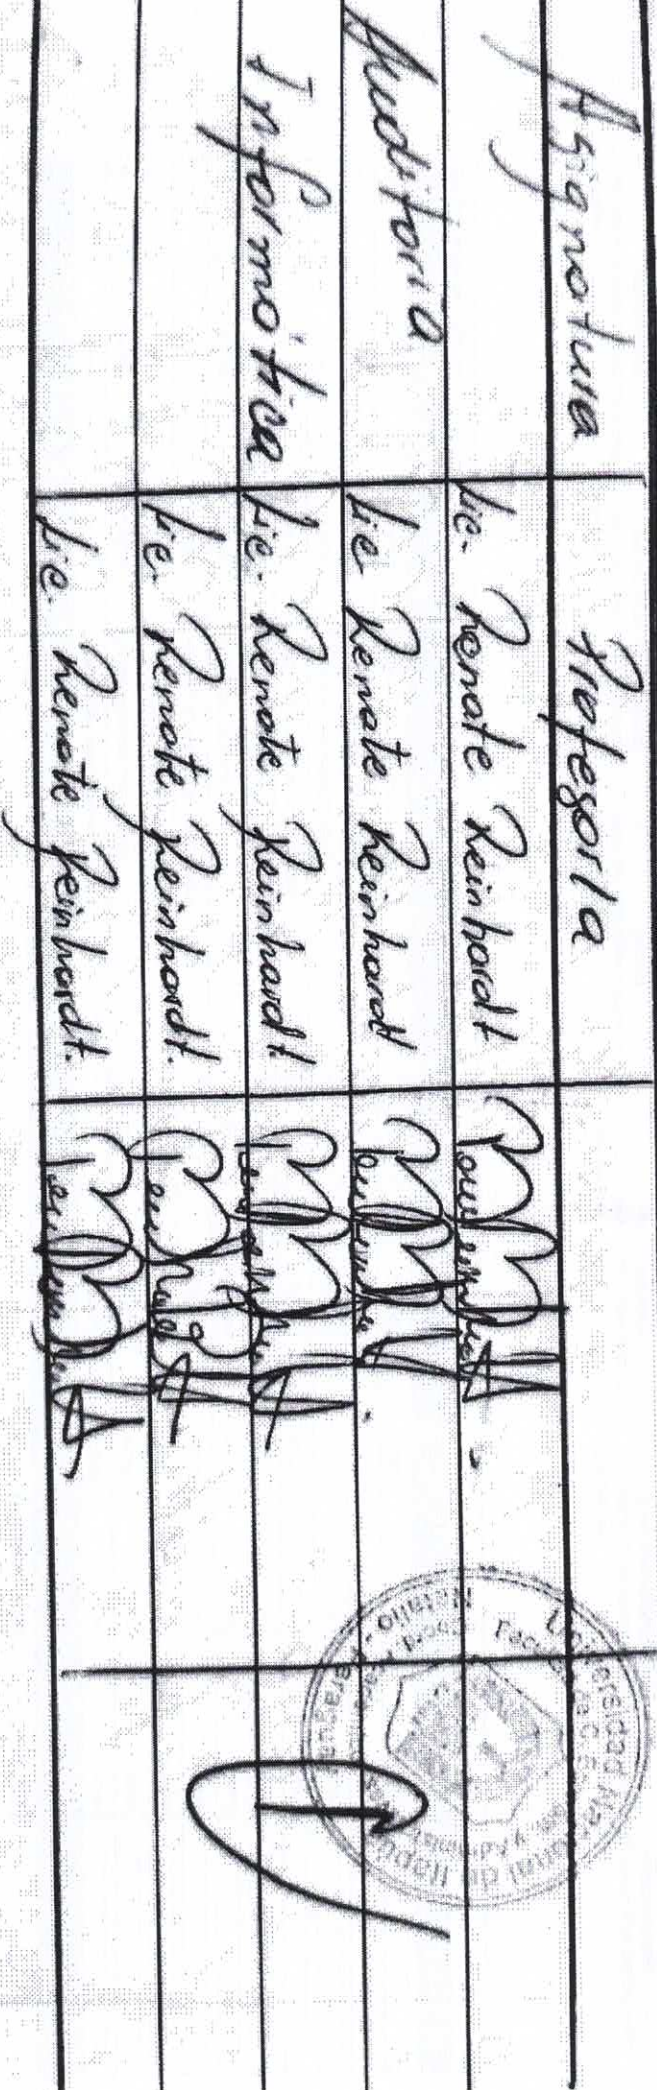 Asignatura Profesor/a
Lic. Renate Reinhardt
Auditoria Lic Renate Reinhardt
Informática Lic. Renate Reinhardt.
Lic. Renate Reinhardt.
Lic. Renate Reinhardt.
Universidad Nacional de Itapúa
Natalio - Paraguay